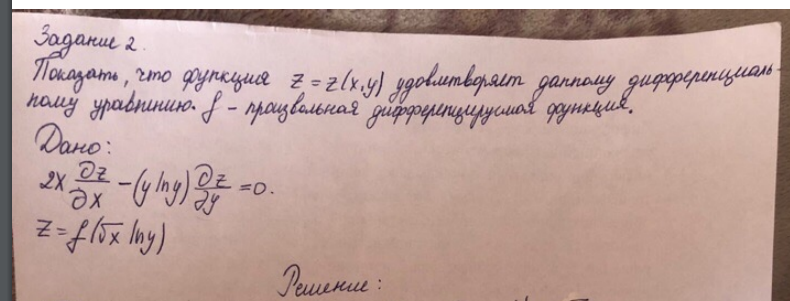 Задание 2.
Показать, что функция z = z(x,y) удовлетворяет данному дифференциаль-
ному уравнению. f - произвольная дифференцируемая функция.
Дано:
2x ∂z/∂x - (y ln y) ∂z/∂y = 0.
z = f(√x ln y)
Решение: